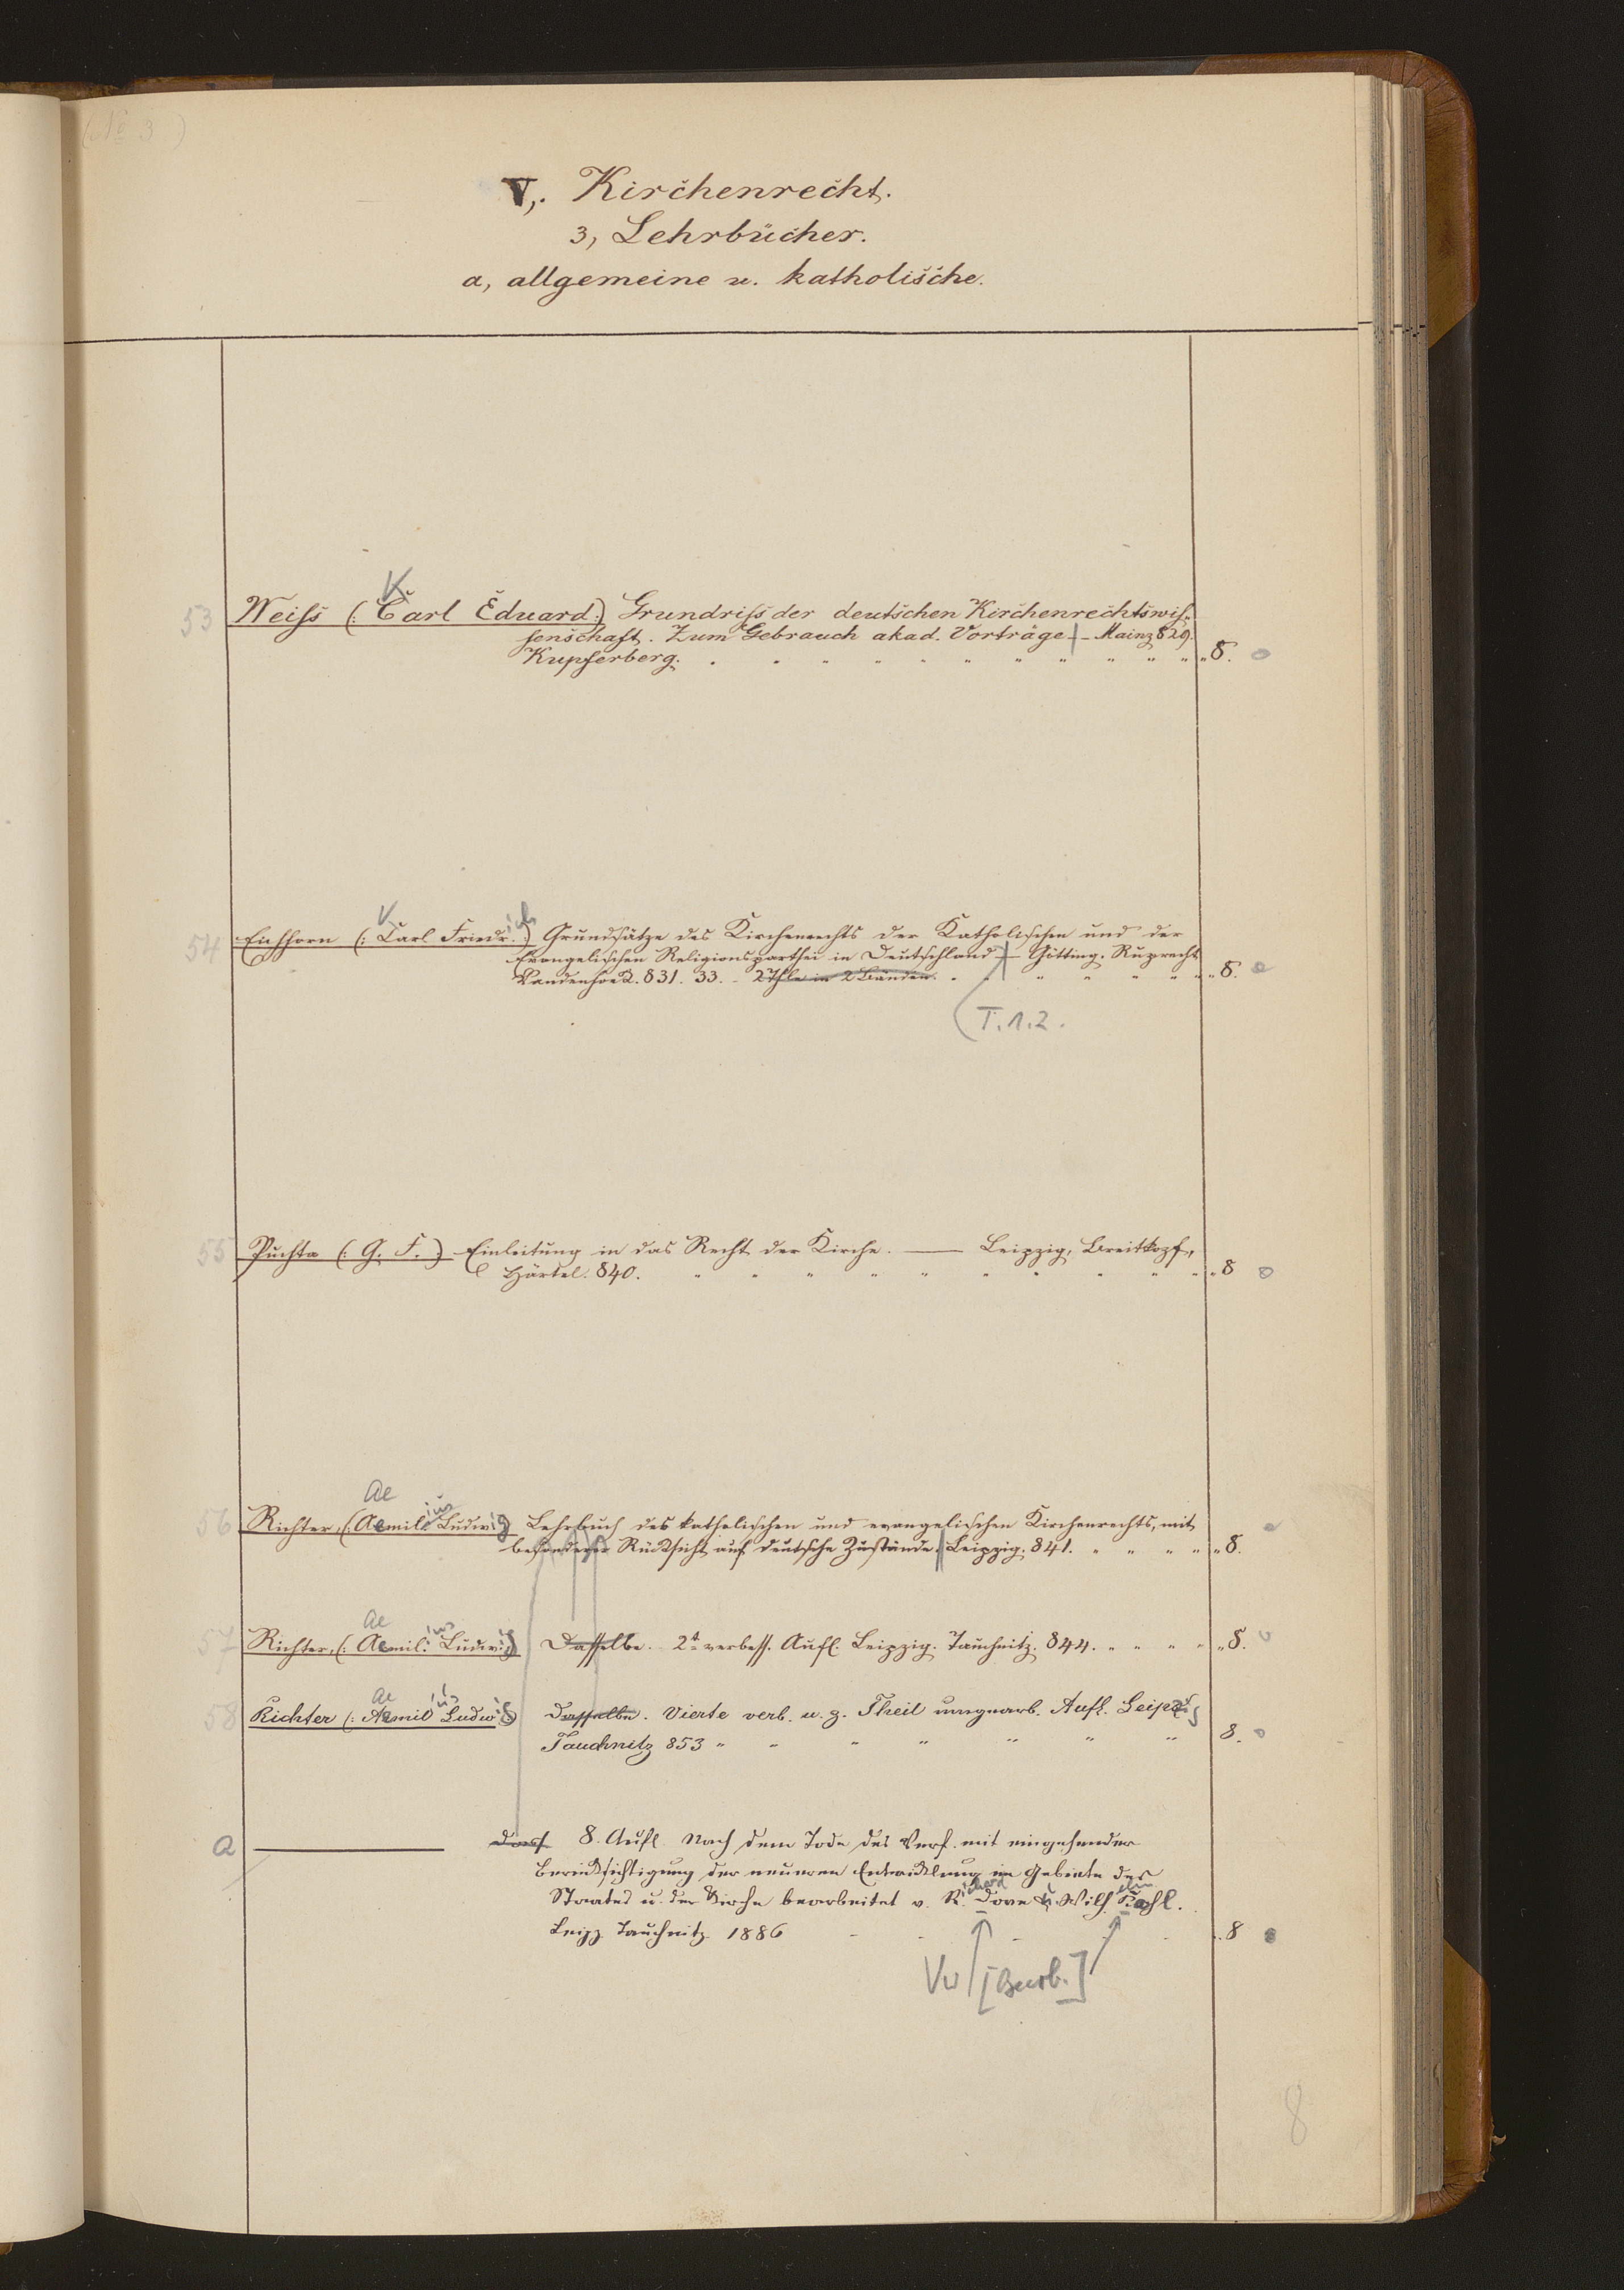 (No 3)
V,. Kirchenrecht.
3, Lehrbücher.
a, allgemeine u. katholische.
K
53 Weiss (: Carl Eduard:) Grundriss der deutschen Kirchenrechtswis-
senschaft. Zum Gebrauch akad. Vorträge. – Mainz 829.
Kupferberg. " " " " " " " " " " " 8.
54 Eichhorn (: Carl Friedr.ich) Grundsätze des Kirchenrechts der Katholischen und der
Evangelischen Religionsparthei in Deutschland – Götting. Ruprecht
Vandenhoek. 831. 33. - 2 Thle in 2 Bänden. " " " " " " " 8.
T. 1. 2.
55 Puchta (: G. F.) Einleitung in das Recht der Kirche. — Leipzig, Breitkopf,
Härtel. 840. " " " " " " " " " " " 8
Ae
56 Richter, (: Aemilius Ludwig Lehrbuch des katholischen und evangelischen Kirchenrechts, mit
besonderer Rücksicht auf deutsche Zustände. Leipzig. 841. " " " " " 8.
Ae
57 Richter, (: Aemilius Ludwig) Dasselbe. 2t verbess. Aufl. Leipzig. Tauchnitz. 844. " " " " " 8.
Ae
58 Richter (: Aemilius Ludwig) Dasselbe. Vierte verb. u. z. Theil umgearb. Aufl. Leipzig
Tauchnitz 853 " " " " " " " 8.
a — Dass. 8. Aufl. Nach dem Tode des Verf. mit eingehender
Berücksichtigung der neueren Entwicklung im Gebiete des
Staates u. der Kirche bearbeitet v. Richard Dove u. Wilhelm Kahl.
Leipz Tauchnitz 1886 8
Vw [Bearb.]
8